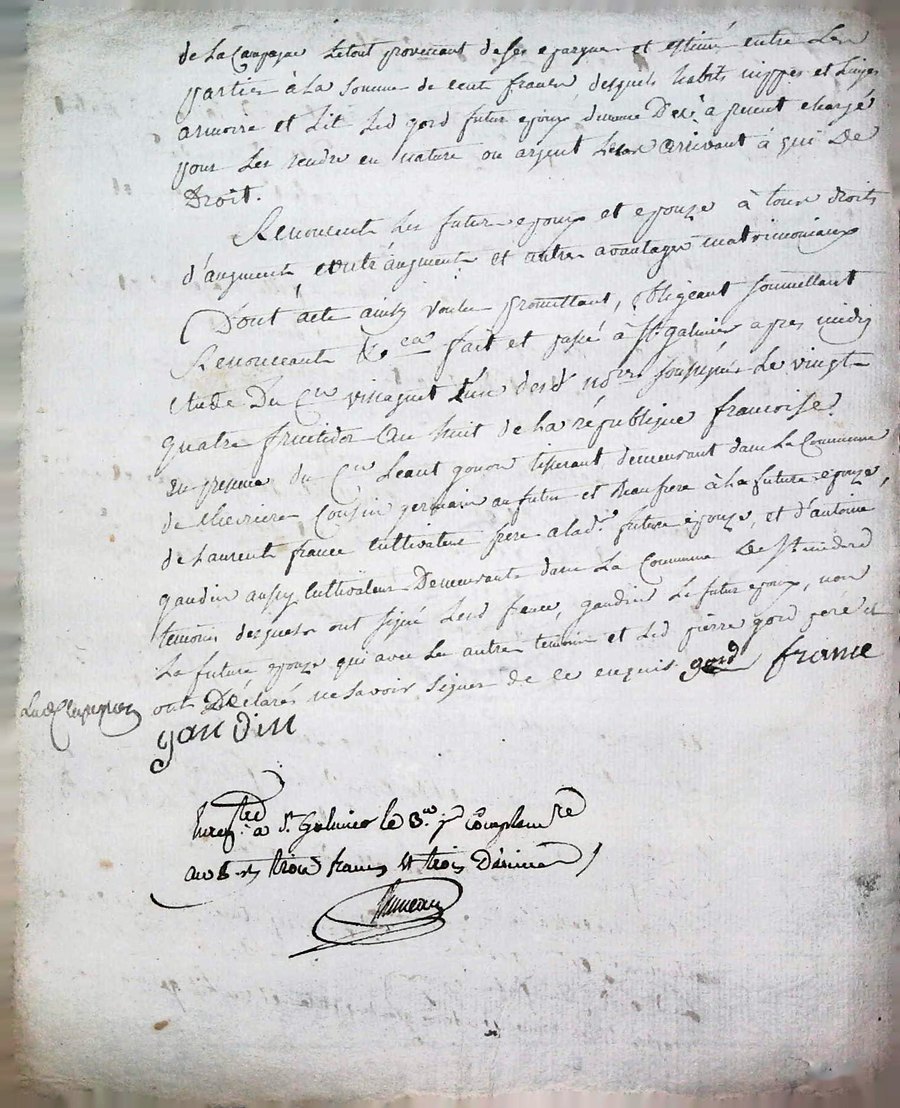 de la Campagne le tout provenant de ses epargnes et estimé entre les
parties à la somme de cent francs desquels habits nippes et linges
armoire et lit led gord futur epoux demeure Des à pnent chargé
pour les rendre en nature ou argent le cas arrivant à qui De
Droit.
Renoncent les futurs epoux et epouze à tous droits
d'augment, contr'augment et autres avantages matrimoniaux
Dont acte ainsy voulu promettant, obligeant soumettant
Renonceant &c fait et passé à St. galmier apres midy
etude Du Cen l'un desd notres soussignés le vingt
quatre fructidor an huit de la république francoise.
en presence du Cen gonon tisserant demeurant dans la Commune
de Chevriere Cousin germain au futur et Beaufrere à la future epouze,
de Laurent france cultivateur frere a lad. future epouze, et d'antoine
gaudin aussy Cultivateur Demeurants dans la Commune De St medard
temoins desquels ont signé lesd france, gaudin le futur epoux, non
la future epouze qui avec les autres temoins et led pierre gord pere et
ont Déclarés ne savoir signer de ce enquis gord france
gaudin
Enregtré à St Galmier le 3me jr Complemre
an 8 trois francs et trois Décimes